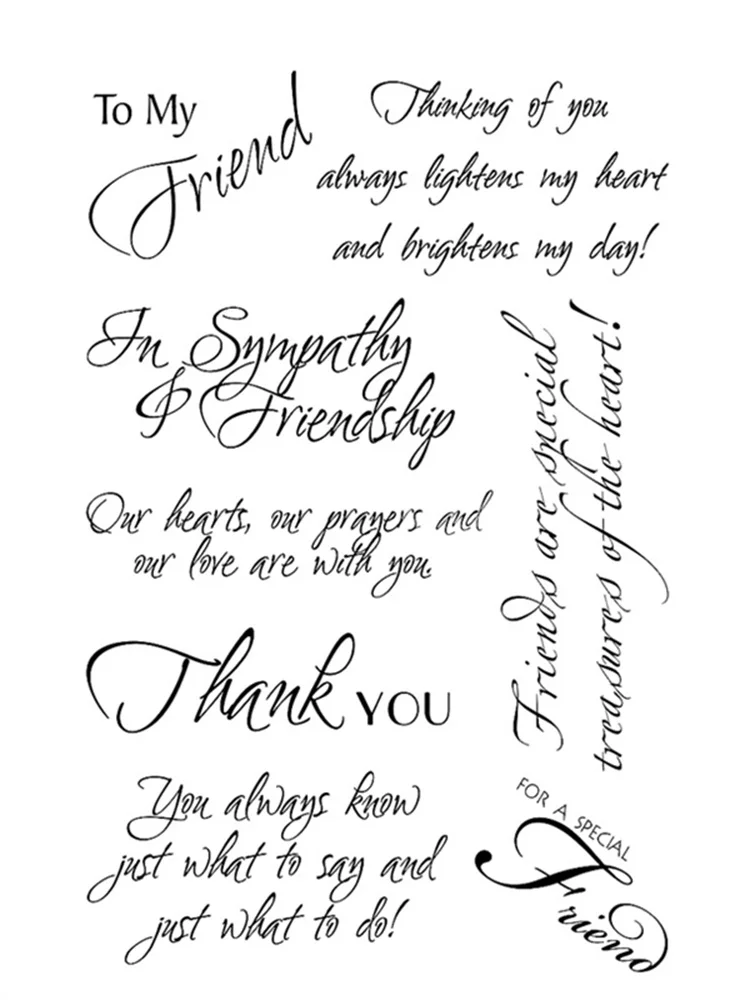 To My
Friend
Thinking of you
always lightens my heart
and brightens my day!
In Sympathy
& Friendship
Our hearts, our prayers and
our love are with you.
Thank YOU
You always know
just what to say and
just what to do!
Friends are special
treasures of the heart!
FOR A SPECIAL
Friend